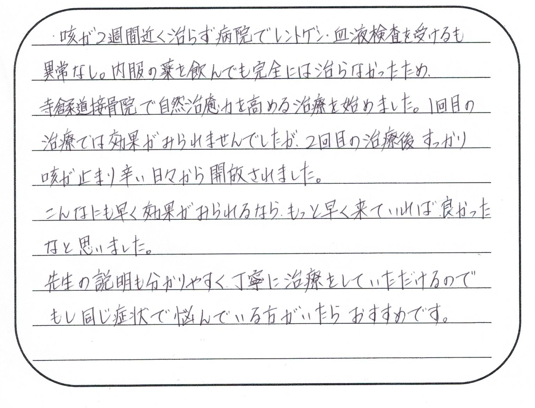 咳が2週間近く治らず病院でレントゲン・血液検査を受けるも
異常なし。内服の薬を飲んでも完全には治らなかったため、
寺倉柔道接骨院で自然治癒力を高める治療を始めました。1回目の
治療では効果がみられませんでしたが、2回目の治療後すっかり
咳が止まり辛い日々から開放されました。
こんなにも早く効果がみられるなら、もっと早く来ていれば良かった
なと思いました。
先生の説明も分かりやすく丁寧に治療をしていただけるので
もし同じ症状で悩んでいる方がいたらおすすめです。